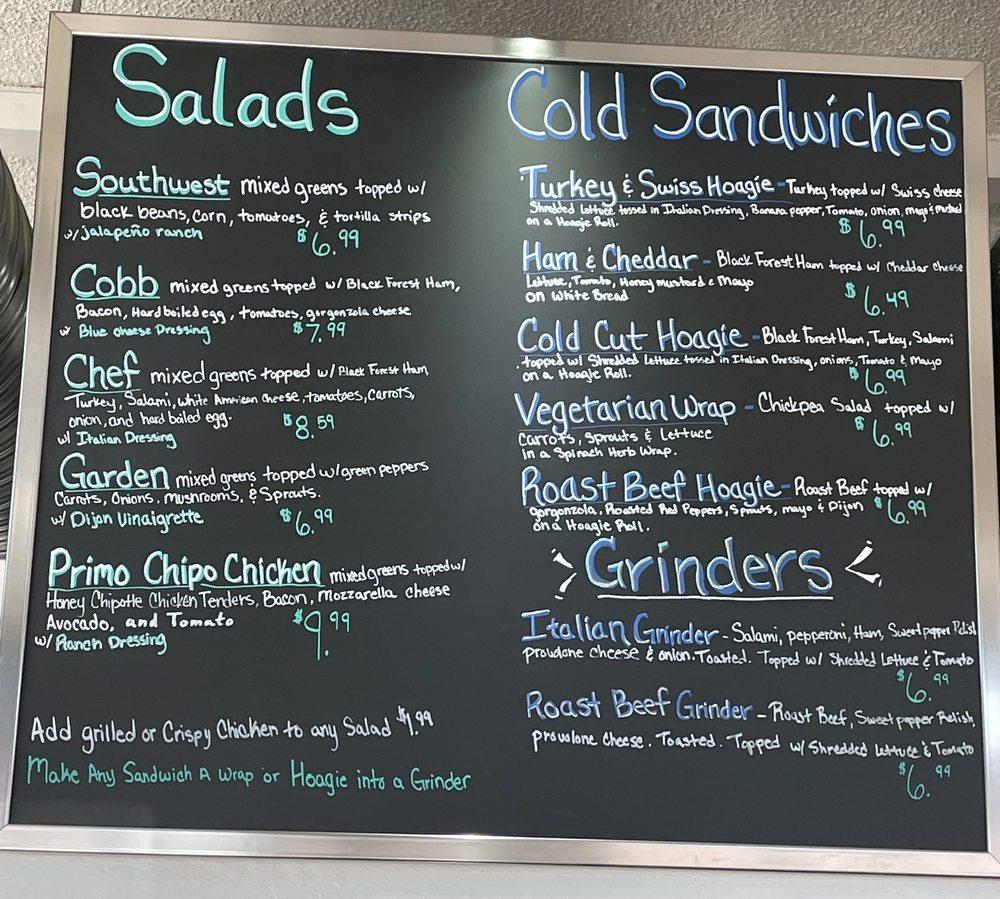 Salads
Southwest mixed greens topped w/
black beans, corn, tomatoes, & tortilla strips
w/ jalapeño ranch $6.99
Cobb mixed greens topped w/ Black Forest Ham,
Bacon, Hard boiled egg, tomatoes, gorgonzola cheese
w/ Blue cheese Dressing $7.99
Chef mixed greens topped w/ Black Forest Ham,
Turkey, Salami, white American cheese, tomatoes, carrots,
onion, and hard boiled egg. $8.59
w/ Italian Dressing
Garden mixed greens topped w/ green peppers
Carrots, Onions, mushrooms, & Sprouts.
w/ Dijon Vinaigrette $6.99
Primo Chipo Chicken mixed greens topped w/
Honey Chipotle Chicken Tenders, Bacon, Mozzarella cheese
Avocado, and Tomato $9.99
w/ Ranch Dressing
Add grilled or Crispy Chicken to any Salad $1.99
Make Any Sandwich A Wrap or Hoagie into a Grinder
Cold Sandwiches
Turkey & Swiss Hoagie - Turkey topped w/ Swiss cheese
Shredded Lettuce tossed in Italian Dressing, Banana pepper, Tomato, onion, mayo & mustard
on a Hoagie Roll. $6.99
Ham & Cheddar - Black Forest Ham topped w/ Cheddar cheese
Lettuce, Tomato, Honey mustard & Mayo
on White Bread $6.49
Cold Cut Hoagie - Black Forest Ham, Turkey, Salami
topped w/ Shredded Lettuce tossed in Italian Dressing, onions, Tomato & Mayo
on a Hoagie Roll. $6.99
Vegetarian Wrap - Chickpea Salad topped w/
Carrots, Sprouts & Lettuce $6.99
in a Spinach Herb Wrap.
Roast Beef Hoagie - Roast Beef topped w/
gorgonzola, Roasted Red Peppers, Sprouts, mayo & Dijon $6.99
on a Hoagie Roll.
Grinders
Italian Grinder - Salami, pepperoni, Ham, Sweet pepper Relish
provolone cheese & onion. Toasted. Topped w/ Shredded Lettuce & Tomato
$6.99
Roast Beef Grinder - Roast Beef, Sweet pepper Relish,
provolone cheese. Toasted. Topped w/ Shredded Lettuce & Tomato
$6.99